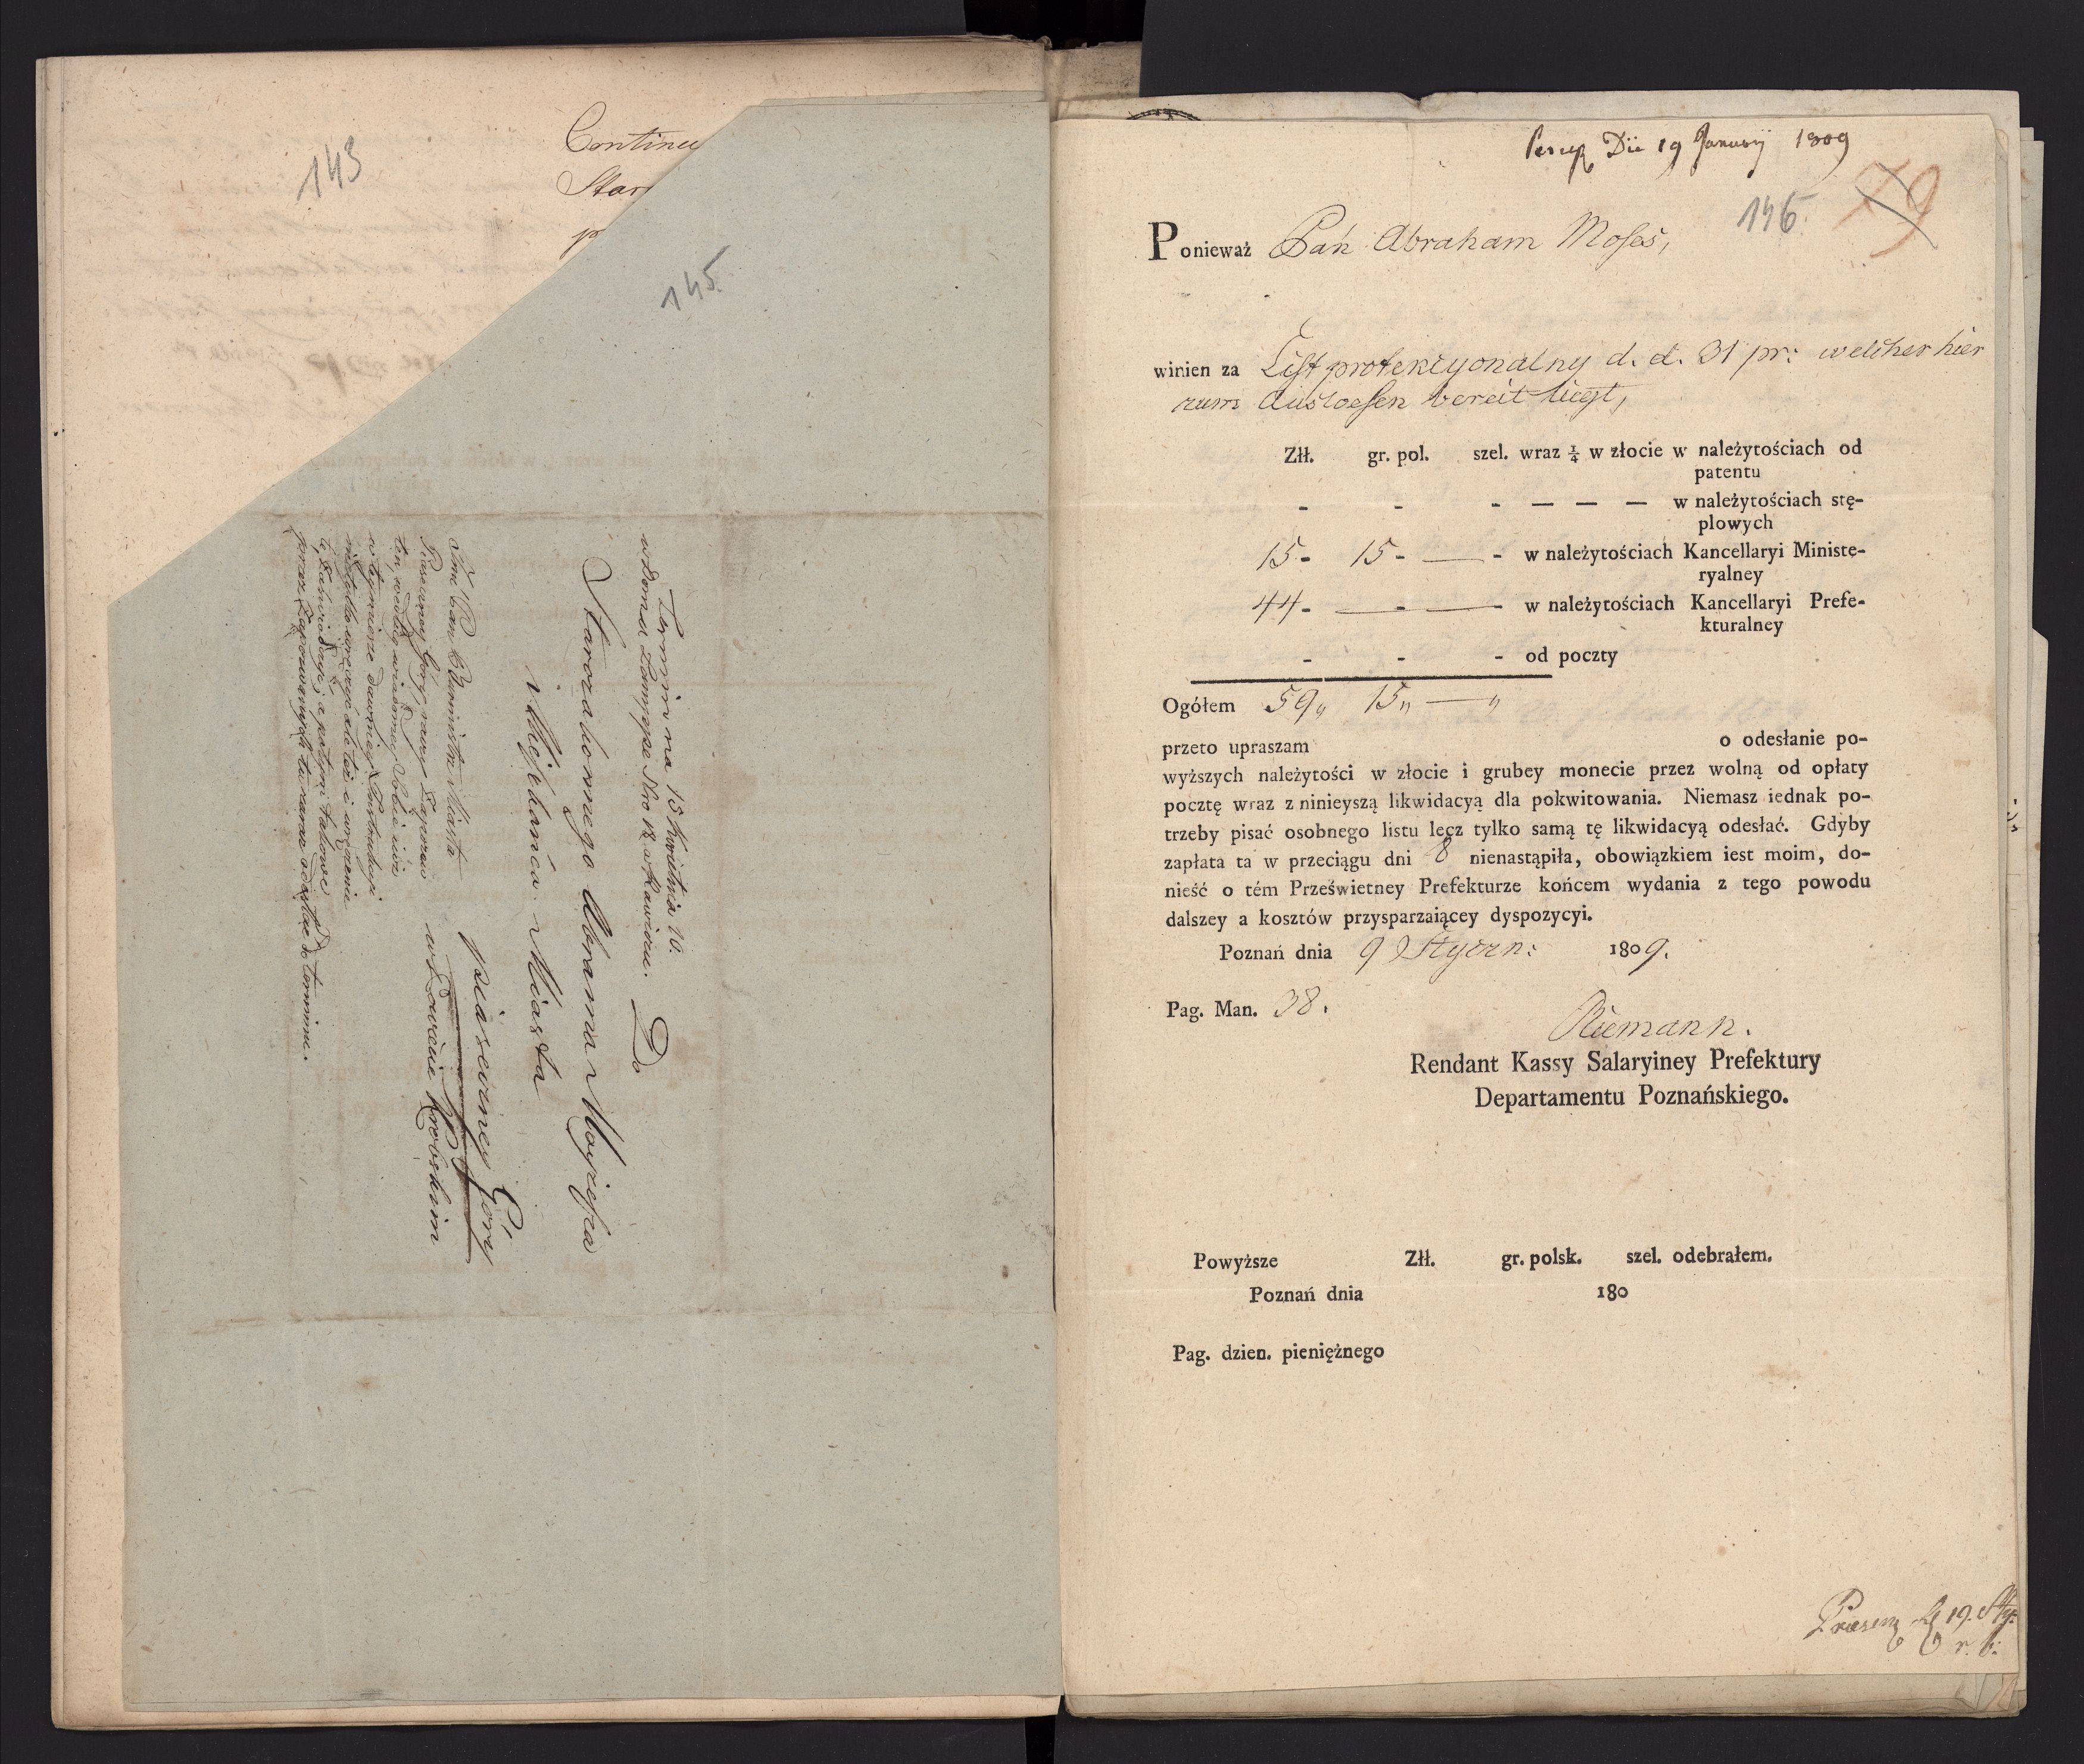 143
Continu
Star
p
145.
Termin na 15 kwietnia 10.
w domu Lampego Nro 12 w Rawiczu.
Do
Starozakonnego Abrama Moyżesza
i Mieszkańca Miasta
Piaseczney Góry
w Powiecie Krobskim
Pan Burmistrz Miasta
Piaseczney Góry, zapozew
ten, według wiadomey Sobie iuż
w tey mierze dawniey Instrukcyi
a potym takowe
przez Zapozwanych tu zaraz odesłać do terminu.
Die 19 January 1809
146. 79
Ponieważ Pań Abraham Moses,
winien za List protekcyonalny d. d. 31 pr: welcher hier
zum Ausloesen bereit liegt,
Złł. gr. pol. szel. wraz ¼ w złocie w należytościach od
patentu
- - - — — — w należytościach stę-
plowych
15- 15- — - w należytościach Kancellaryi Ministe-
ryalney
44- — - — w należytościach Kancellaryi Prefe-
kturalney
- - - od poczty
Ogółem 59„ 15„ — „
przeto upraszam o odesłanie po-
wyższych należytości w złocie i grubey monecie przez wolną od opłaty
pocztę wraz z ninieyszą likwidacyą dla pokwitowania. Niemasz iednak po-
trzeby pisać osobnego listu lecz tylko samą tę likwidacyą odesłać. Gdyby
zapłata ta w przeciągu dni 8 nienastąpiła, obowiązkiem iest moim, do-
nieść o tém Prześwietney Prefekturze końcem wydania z tego powodu
dalszey a kosztów przysparzaiącey dyspozycyi.
Poznań dnia 9 Styczn: 1809.
Pag. Man. 38.
Riemann.
Rendant Kassy Salaryiney Prefektury
Departamentu Poznańskiego.
Powyższe Złł. gr. polsk. szel. odebrałem.
Poznań dnia 180
Pag. dzien. pieniężnego
19. Sty:
r. b: